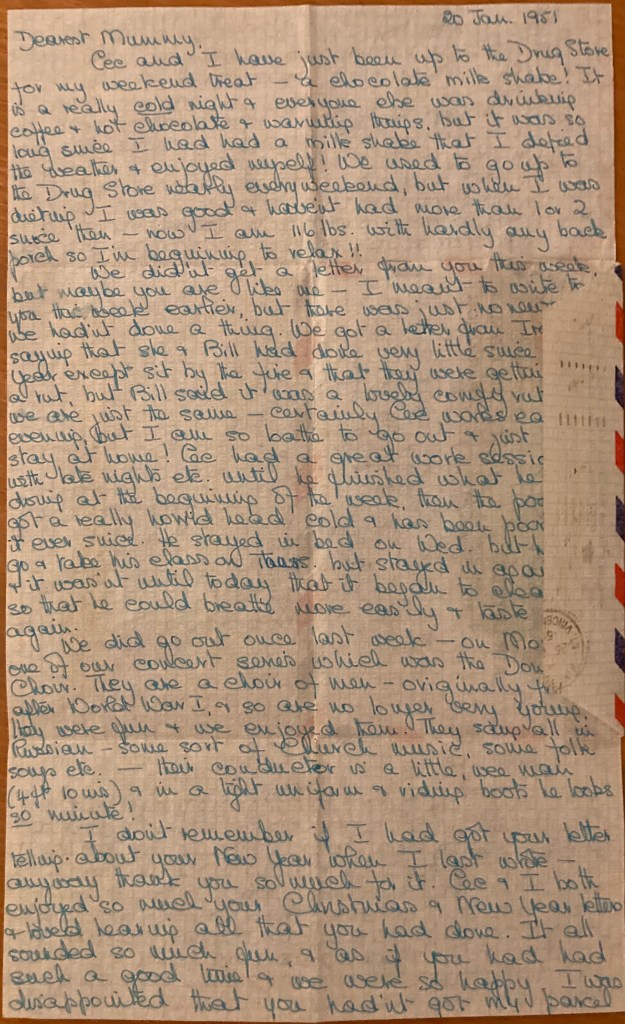 20 Jan. 1951
Dearest Mummy,
Cec and I have just been up to the Drug Store
for my weekend treat – a chocolate milk shake! It
is a really cold night & everyone else was drinking
coffee & hot chocolate & warming things, but it was so
long since I had had a milk shake that I defied
the weather & enjoyed myself! We used to go up to
the Drug Store nearly every weekend, but when I was
dieting I was good & haven't had more than 1 or 2
since then – now I am 116 lbs. with hardly any back
porch so I'm beginning to relax!!
We did'nt get a letter from you this week,
but maybe you are like me – I meant to write to
you this week earlier, but there was just no new
we had'nt done a thing. We got a letter from
saying that she & Bill had done very little since
Year except sit by the fire & that they were gettin
a rut, but Bill said it was a lovely comfy rut
we are just the same – certainly Cec works ea
evening, but I am so loathe to go out & just
stay at home! Cec had a great work sessio
with late nights etc. until he finished what he
doing at the beginning of the week, then the poo
got a really horrid head cold & has been poor
it ever since. He stayed in bed on Wed. but h
go & take his class on Thurs. but stayed in agai
& it was'nt until today that it began to clea
so that he could breathe more easily & taste
again.
We did go out once last week – on Mo
one of our concert series which was the Don
Choir. They are a choir of men – originally fr
after World War I, & so are no longer very young.
they were fun & we enjoyed them. They sang all in
Russian – some sort of Church music, some folk
songs etc. – their conductor is a little, wee man
(4ft 10 ins) & in a tight uniform & riding boots he looks
so minute!
I don't remember if I had got your letter
telling about your New Year when I last wrote –
anyway thank you so much for it. Cec & I both
enjoyed so much your Christmas & New Year letters
& loved hearing all that you had done. It all
sounded so much fun, & as if you had had
such a good time & we were so happy. I was
disappointed that you had'nt got my parcel